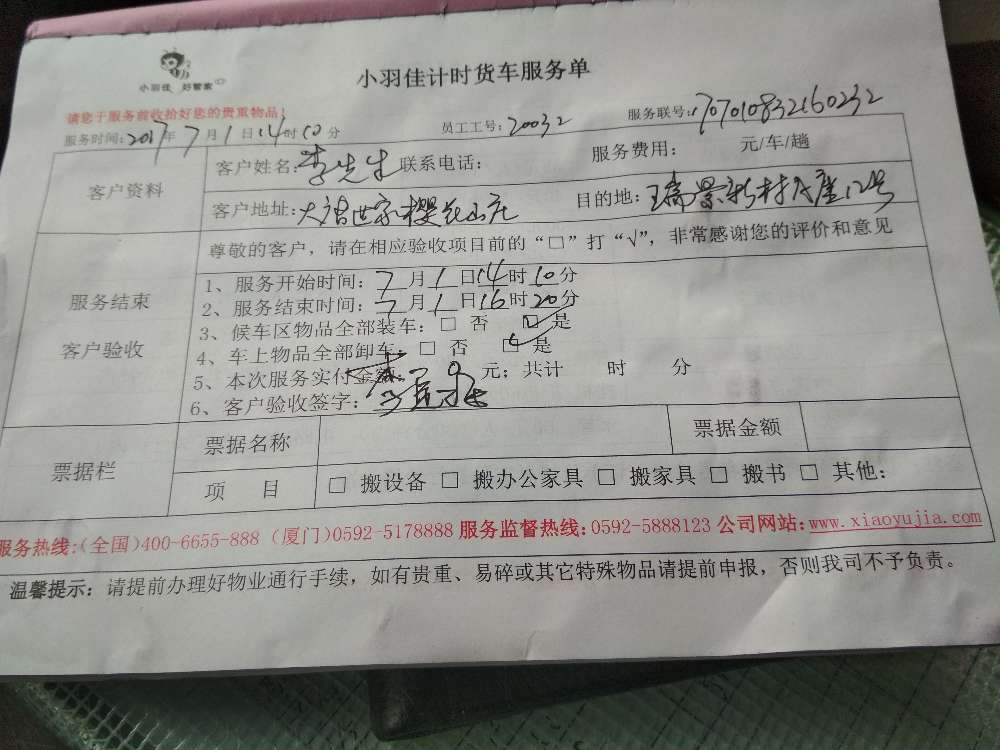 小羽佳 好管家
小羽佳计时货车服务单
请您于服务前收拾好您的贵重物品!
服务时间:2017年7月1日14时10分 员工工号:20032 服务联号:170701083260232
客户资料
客户姓名:李先生 联系电话: 服务费用: 元/车/趟
客户地址:大唐世家樱花山庄 目的地:瑞景新村 座12号
服务结束
客户验收
尊敬的客户,请在相应验收项目前的“□”打“√”,非常感谢您的评价和意见
1、服务开始时间:7月1日14时10分
2、服务结束时间:7月1日16时20分
3、候车区物品全部装车:□ 否 ☑ 是
4、车上物品全部卸车:□ 否 ☑ 是
5、本次服务实付金额: 元;共计 时 分
6、客户验收签字:
票据栏
票据名称 票据金额
项 目 □ 搬设备 □ 搬办公家具 □ 搬家具 □ 搬书 □ 其他:
服务热线:(全国)400-6655-888 (厦门)0592-5178888 服务监督热线:0592-5888123 公司网站:www.xiaoyujia.com
温馨提示:请提前办理好物业通行手续,如有贵重、易碎或其它特殊物品请提前申报,否则我司不予负责。